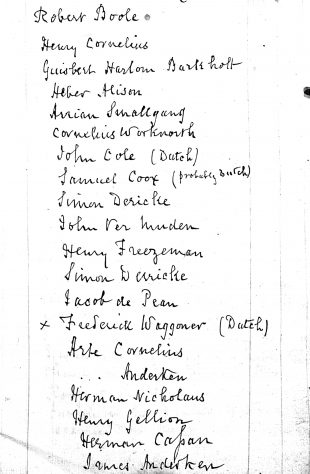 Robert Boole
Henry Cornelius
Guisbert Harlom Barkholt
Heber Alison
Arian Smallgang
Cornelius Worknorth
John Cole (Dutch)
Samuel Coox (probably Dutch)
Simon Dericke
John Ver Muden
Henry Freezeman
Simon Derricke
Jacob de Pean
x Frederick Waggoner (Dutch)
Arte Cornelius
... Anderken
Herman Nicholaus
Henry Gellion
Herman Capan
James Anderken